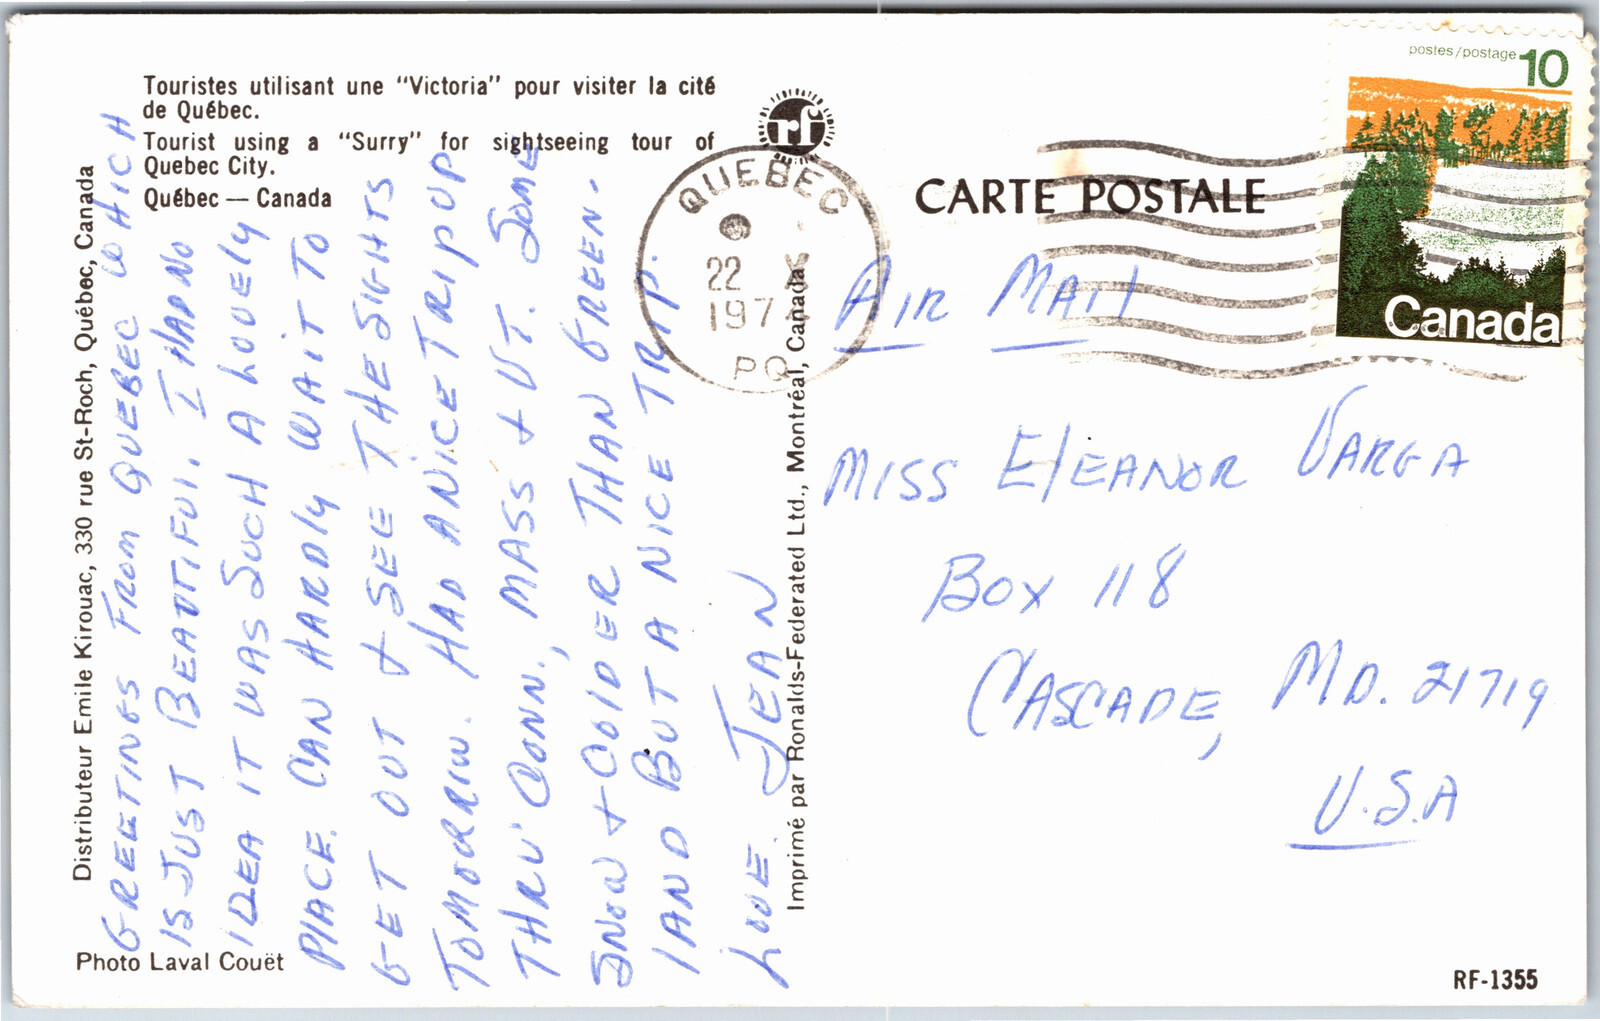 Touristes utilisant une "Victoria" pour visiter la cité
de Québec.
Tourist using a "Surry" for sightseeing tour of
Quebec City.
Québec — Canada
Distributeur Emile Kirouac, 330 rue St-Roch, Québec, Canada
GREETINGS FROM QUEBEC WHICH
IS JUST BEAUTIFUL. I HAD NO
IDEA IT WAS SUCH A LOVELY
PLACE. CAN HARDLY WAIT TO
GET OUT & SEE THE SIGHTS
TOMORROW. HAD A NICE TRIP UP
THRU CONN., MASS & VT. SOME
SNOW & COLDER THAN GREEN-
LAND BUT A NICE TRIP.
LOVE. JEAN
Photo Laval Couët
Imprimé par Ronalds-Federated Ltd., Montréal, Canada.
rf
CARTE POSTALE
QUEBEC
22 X
197
PQ
postes/postage 10
Canada
AIR MAIL
MISS ELEANOR VARGA
BOX 118
CASCADE, MD. 21719
U.S.A
RF-1355